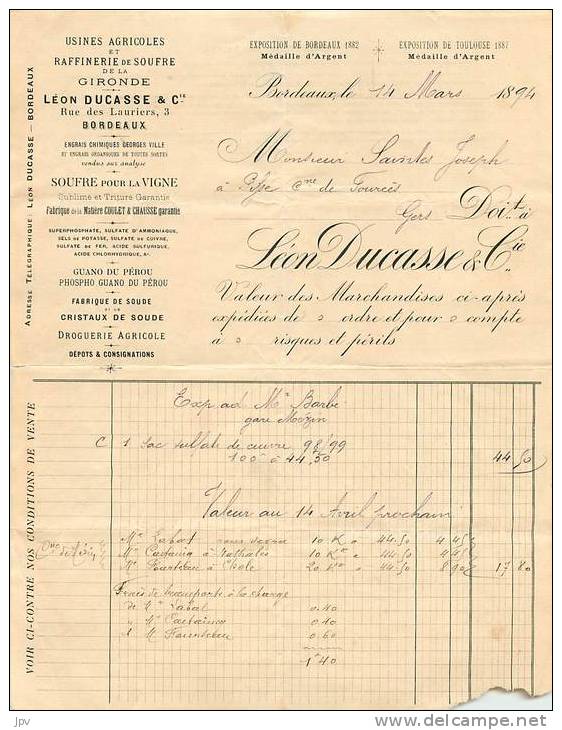 USINES AGRICOLES
ET
RAFFINERIE DE SOUFRE
DE LA
GIRONDE
LÉON DUCASSE & Cie
Rue des Lauriers, 3
BORDEAUX
ENGRAIS CHIMIQUES GEORGES VILLE
ET ENGRAIS ORGANIQUES DE TOUTES SORTES
vendus sur analyse
SOUFRE POUR LA VIGNE
Sublimé et Trituré Garantie
Fabrique de la Matière COULET & CHAUSSE garantie
SUPERPHOSPHATE, SULFATE D'AMMONIAQUE,
SELS DE POTASSE, SULFATE DE CUIVRE,
SULFATE DE FER, ACIDE SULFURIQUE,
ACIDE CHLORHYDRIQUE, &a.
GUANO DU PÉROU
PHOSPHO GUANO DU PÉROU
FABRIQUE DE SOUDE
ET DE
CRISTAUX DE SOUDE
DROGUERIE AGRICOLE
DÉPOTS & CONSIGNATIONS
ADRESSE TÉLÉGRAPHIQUE: LÉON DUCASSE — BORDEAUX
EXPOSITION DE BORDEAUX 1882
Médaille d'Argent
EXPOSITION DE TOULOUSE 1887
Médaille d'Argent
Bordeaux, le 14 Mars 1894
Monsieur Saintes Joseph
à Cne de Fourcès
Gers Doit à
Léon Ducasse & Cie
Valeur des Marchandises ci-après
expédiées de s ordre et pour s compte
à s risques et périls
VOIR CI-CONTRE NOS CONDITIONS DE VENTE
Exp ad Mr Barbé
gare Mézin
C 1 sac sulfate de cuivre 98/99
100 k à 44,50 44 50
Valeur au 14 Avril prochain
Mr Labat 10 K à 44.50 4 45
Mr 10 K à 44.50 4 45
Mr à 20 K à 44.50 8 90 17 80
Frais de transports à la charge
de Mr Labat 0.40
" Mr 0.10
" Mr 0.60
1 40
jpv
www.delcampe.net